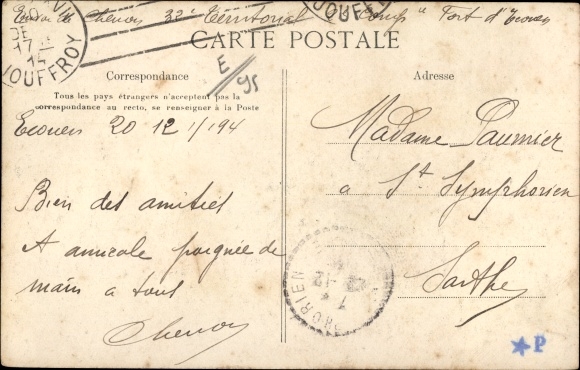 Chenon 32e Territorial Comp. Fort d'Ecouen
17
14
JOUFFROY
CARTE POSTALE
E/95
Correspondance
Tous les pays étrangers n'acceptent pas la
correspondance au recto, se renseigner à la Poste
Ecouen 20 12 1/194
Bien des amitiés
A amicale poignée de
main a tous
Chenon
Adresse
Madame Paumier
a St Symphorien
Sarthe
HORIEN
22 -12
14
★P